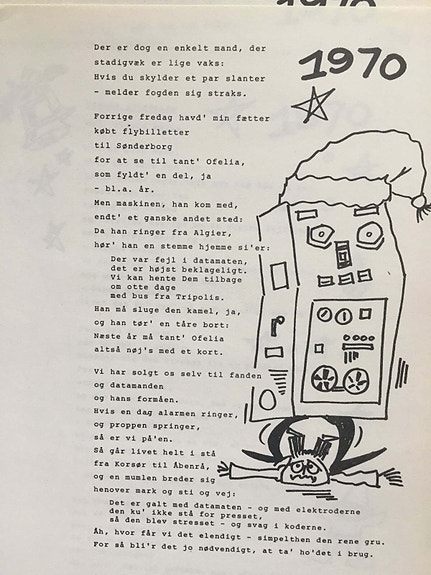 1970
Der er dog en enkelt mand, der
stadigvæk er lige vaks:
Hvis du skylder et par slanter
- melder fogden sig straks.
Forrige fredag havd' min fætter
købt flybilletter
til Sønderborg
for at se til tant' Ofelia,
som fyldt' en del, ja
- bl.a. år.
Men maskinen, han kom med,
endt' et ganske andet sted:
Da han ringer fra Algier,
hør' han en stemme hjemme si'er:
Der var fejl i datamaten,
det er højst beklageligt.
Vi kan hente Dem tilbage
om otte dage
med bus fra Tripolis.
Han må sluge den kamel, ja,
og han tør' en tåre bort:
Næste år må tant' Ofelia
altså nøj's med et kort.
Vi har solgt os selv til fanden
og datamanden
og hans formåen.
Hvis en dag alarmen ringer,
og proppen springer,
så er vi på'en.
Så går livet helt i stå
fra Korsør til Åbenrå,
og en mumlen breder sig
henover mark og sti og vej:
Det er galt med datamaten - og med elektroderne
den ku' ikke stå for presset,
så den blev stresset - og svag i koderne.
Åh, hvor får vi det elendigt - simpelthen den rene gru.
For så bli'r det jo nødvendigt, at ta' ho'det i brug.